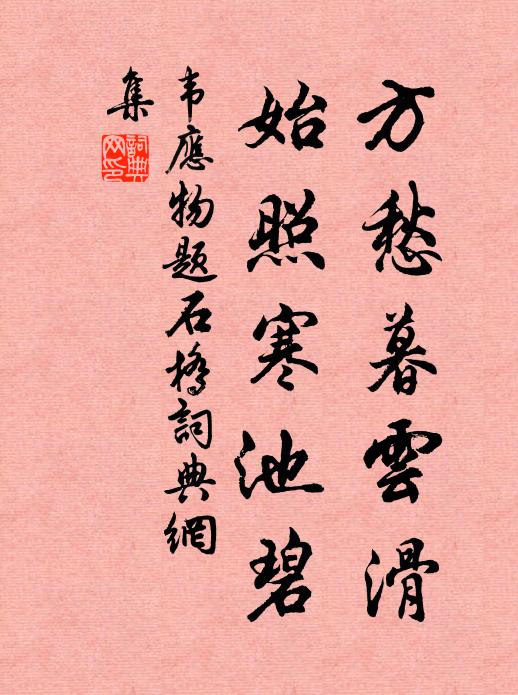 方愁暮雲滑
始照寒池碧
韦應物题石橋詞典網
集
詞典网印